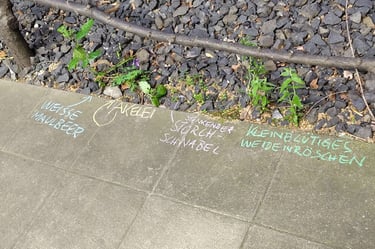 WEISSE
MAULBEER
AKELEI
STINKENDER
STORCH-
SCHNABEL
KLEINBLÜTIGES
WEIDENRÖSCHEN